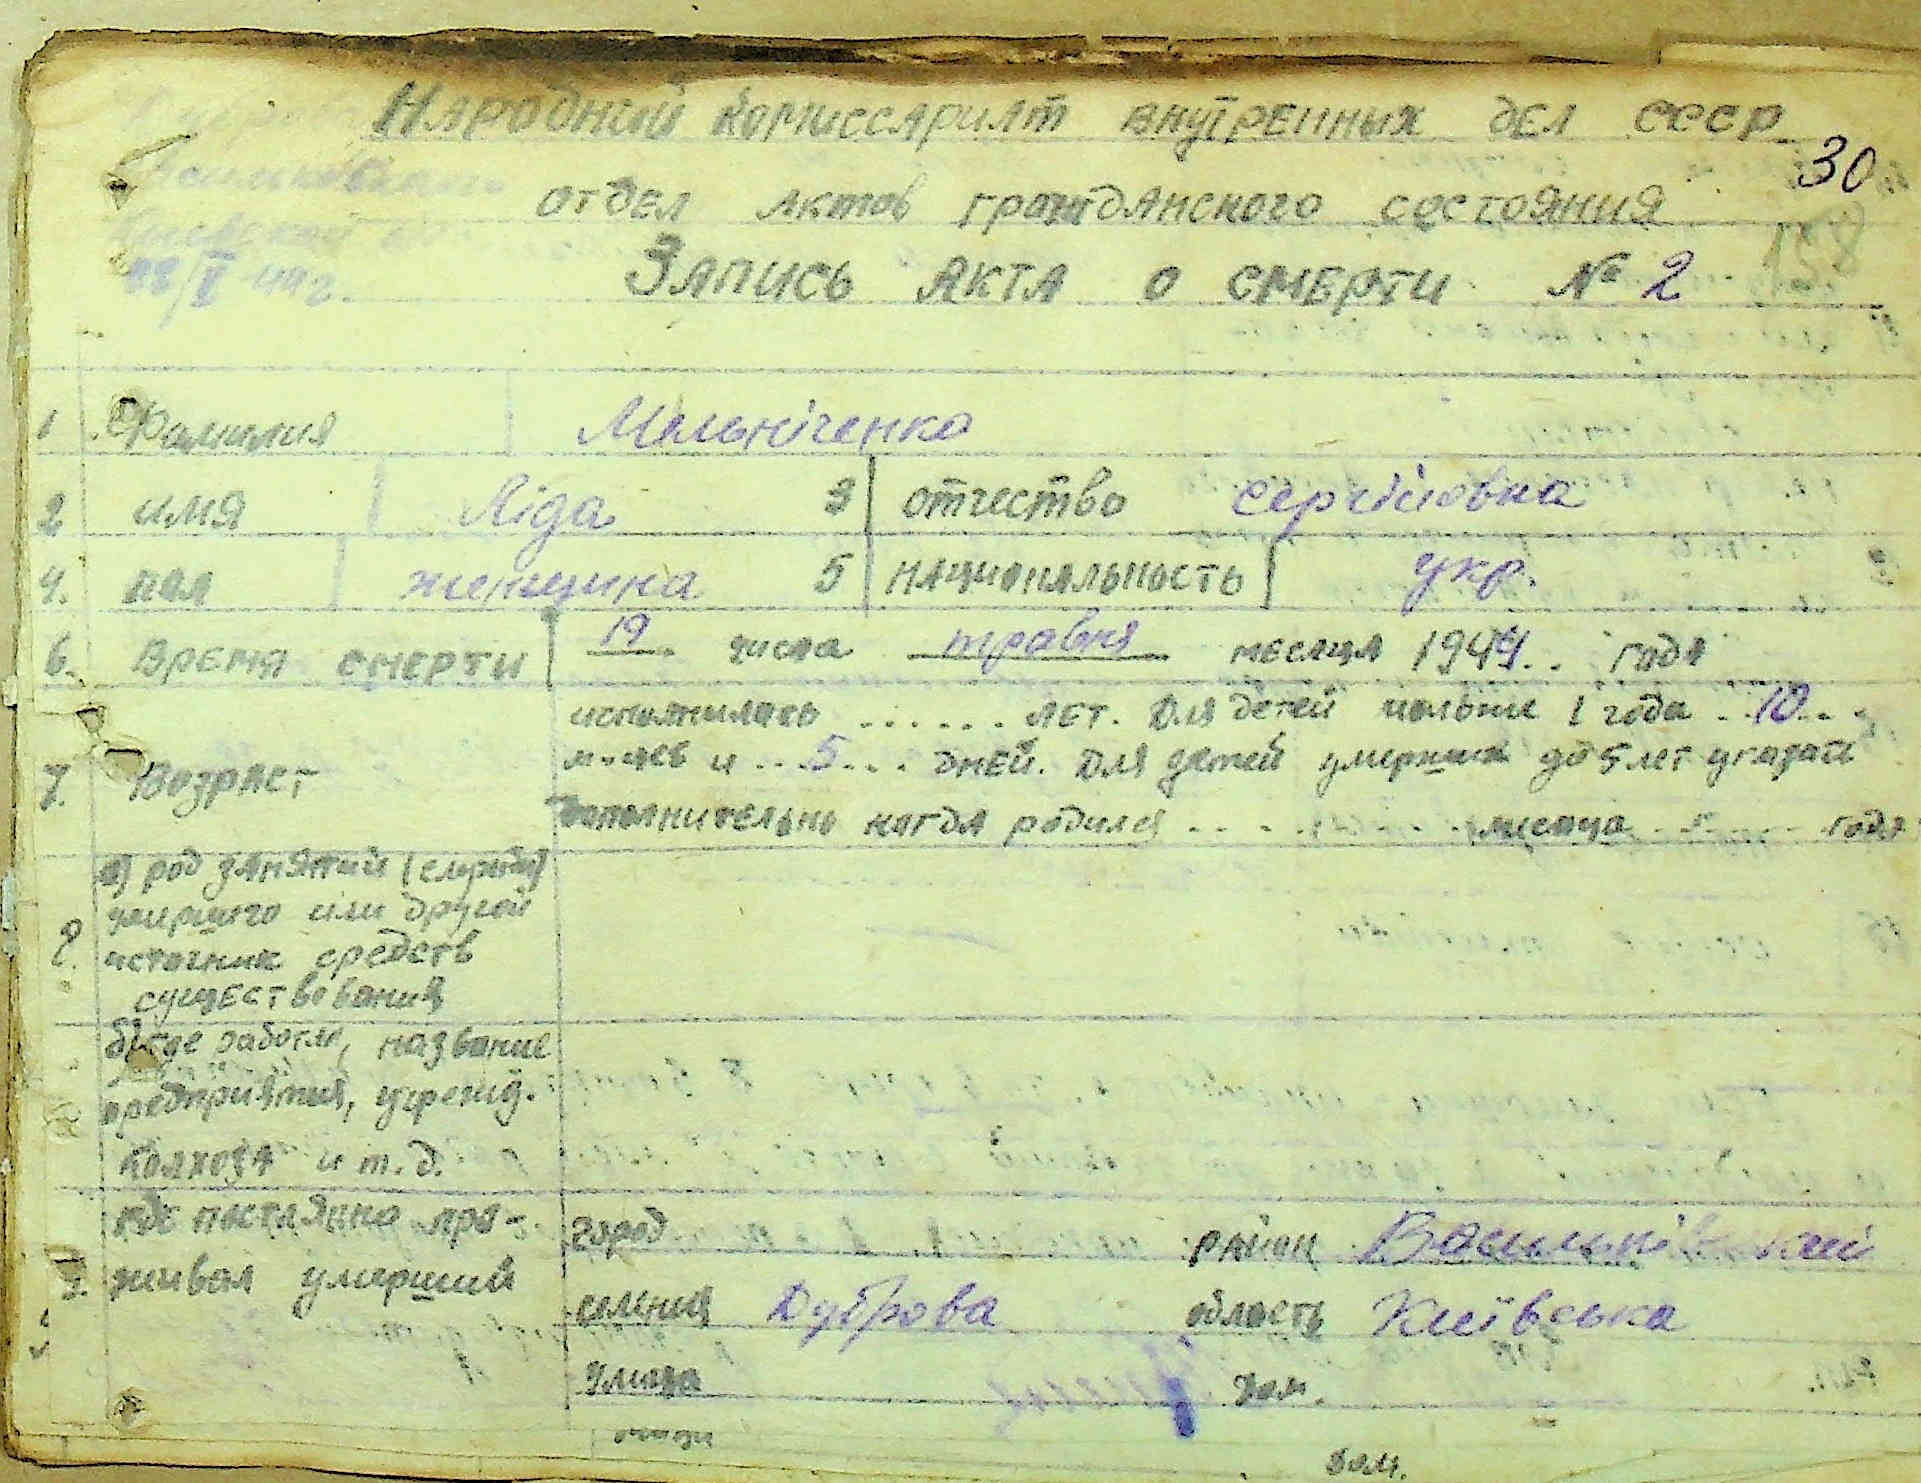 Народный комиссариат внутренных дел СССР
30
отдел актов гражданского состояния
158
Запись акта о смерти № 2
1 Фамилия Мельніченко
2 имя Ліда 3 отчество Сергійовна
4. пол женщина 5 национальность укр.
6. Время смерти 19 числа травня месяца 1944.. года
исполнилось ...... лет. Для детей меньше 1 года ..10...
7. Возраст м-цев и ...5... дней. Для детей умерших до 5 лет указать
дополнительно когда родился ........ месяца ..... года
а) род занятий (службы)
умершего или другой
8. источник средств
существования
б) где работал, название
предприятия, учрежд.
колхоза и т.д.
где постоянно про-
город район Васильківский
9. живал умерший
селения Дуброва область Київська
Улица дом.
дом.